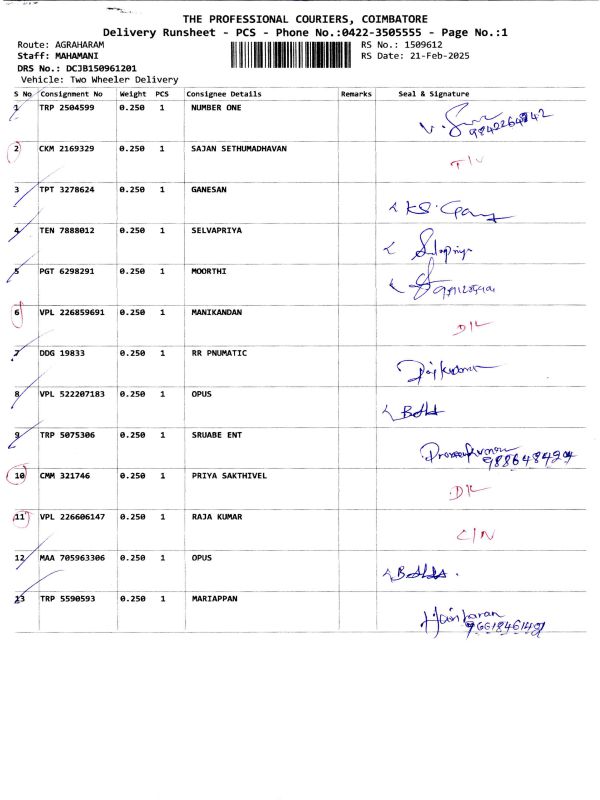 THE PROFESSIONAL COURIERS, COIMBATORE
Delivery Runsheet - PCS - Phone No.:0422-3505555 - Page No.:1
Route: AGRAHARAM RS No.: 1509612
Staff: MAHAMANI RS Date: 21-Feb-2025
DRS No.: DCJB150961201
Vehicle: Two Wheeler Delivery
S No Consignment No Weight PCS Consignee Details Remarks Seal & Signature
1 TRP 2504599 0.250 1 NUMBER ONE
2 CKM 2169329 0.250 1 SAJAN SETHUMADHAVAN
3 TPT 3278624 0.250 1 GANESAN
4 TEN 7888012 0.250 1 SELVAPRIYA
5 PGT 6298291 0.250 1 MOORTHI
6 VPL 226859691 0.250 1 MANIKANDAN D/L
7 DDG 19833 0.250 1 RR PNUMATIC
8 VPL 522207183 0.250 1 OPUS
9 TRP 5075306 0.250 1 SRUABE ENT
10 CMM 321746 0.250 1 PRIYA SAKTHIVEL D/L
11 VPL 226606147 0.250 1 RAJA KUMAR C/N
12 MAA 705963306 0.250 1 OPUS
13 TRP 5590593 0.250 1 MARIAPPAN